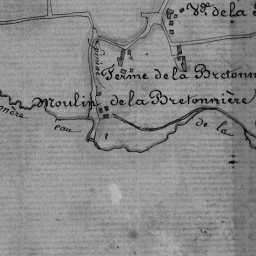 de la
Ferme de la Bretonn
Moulin de la Bretonnière
eau
de la